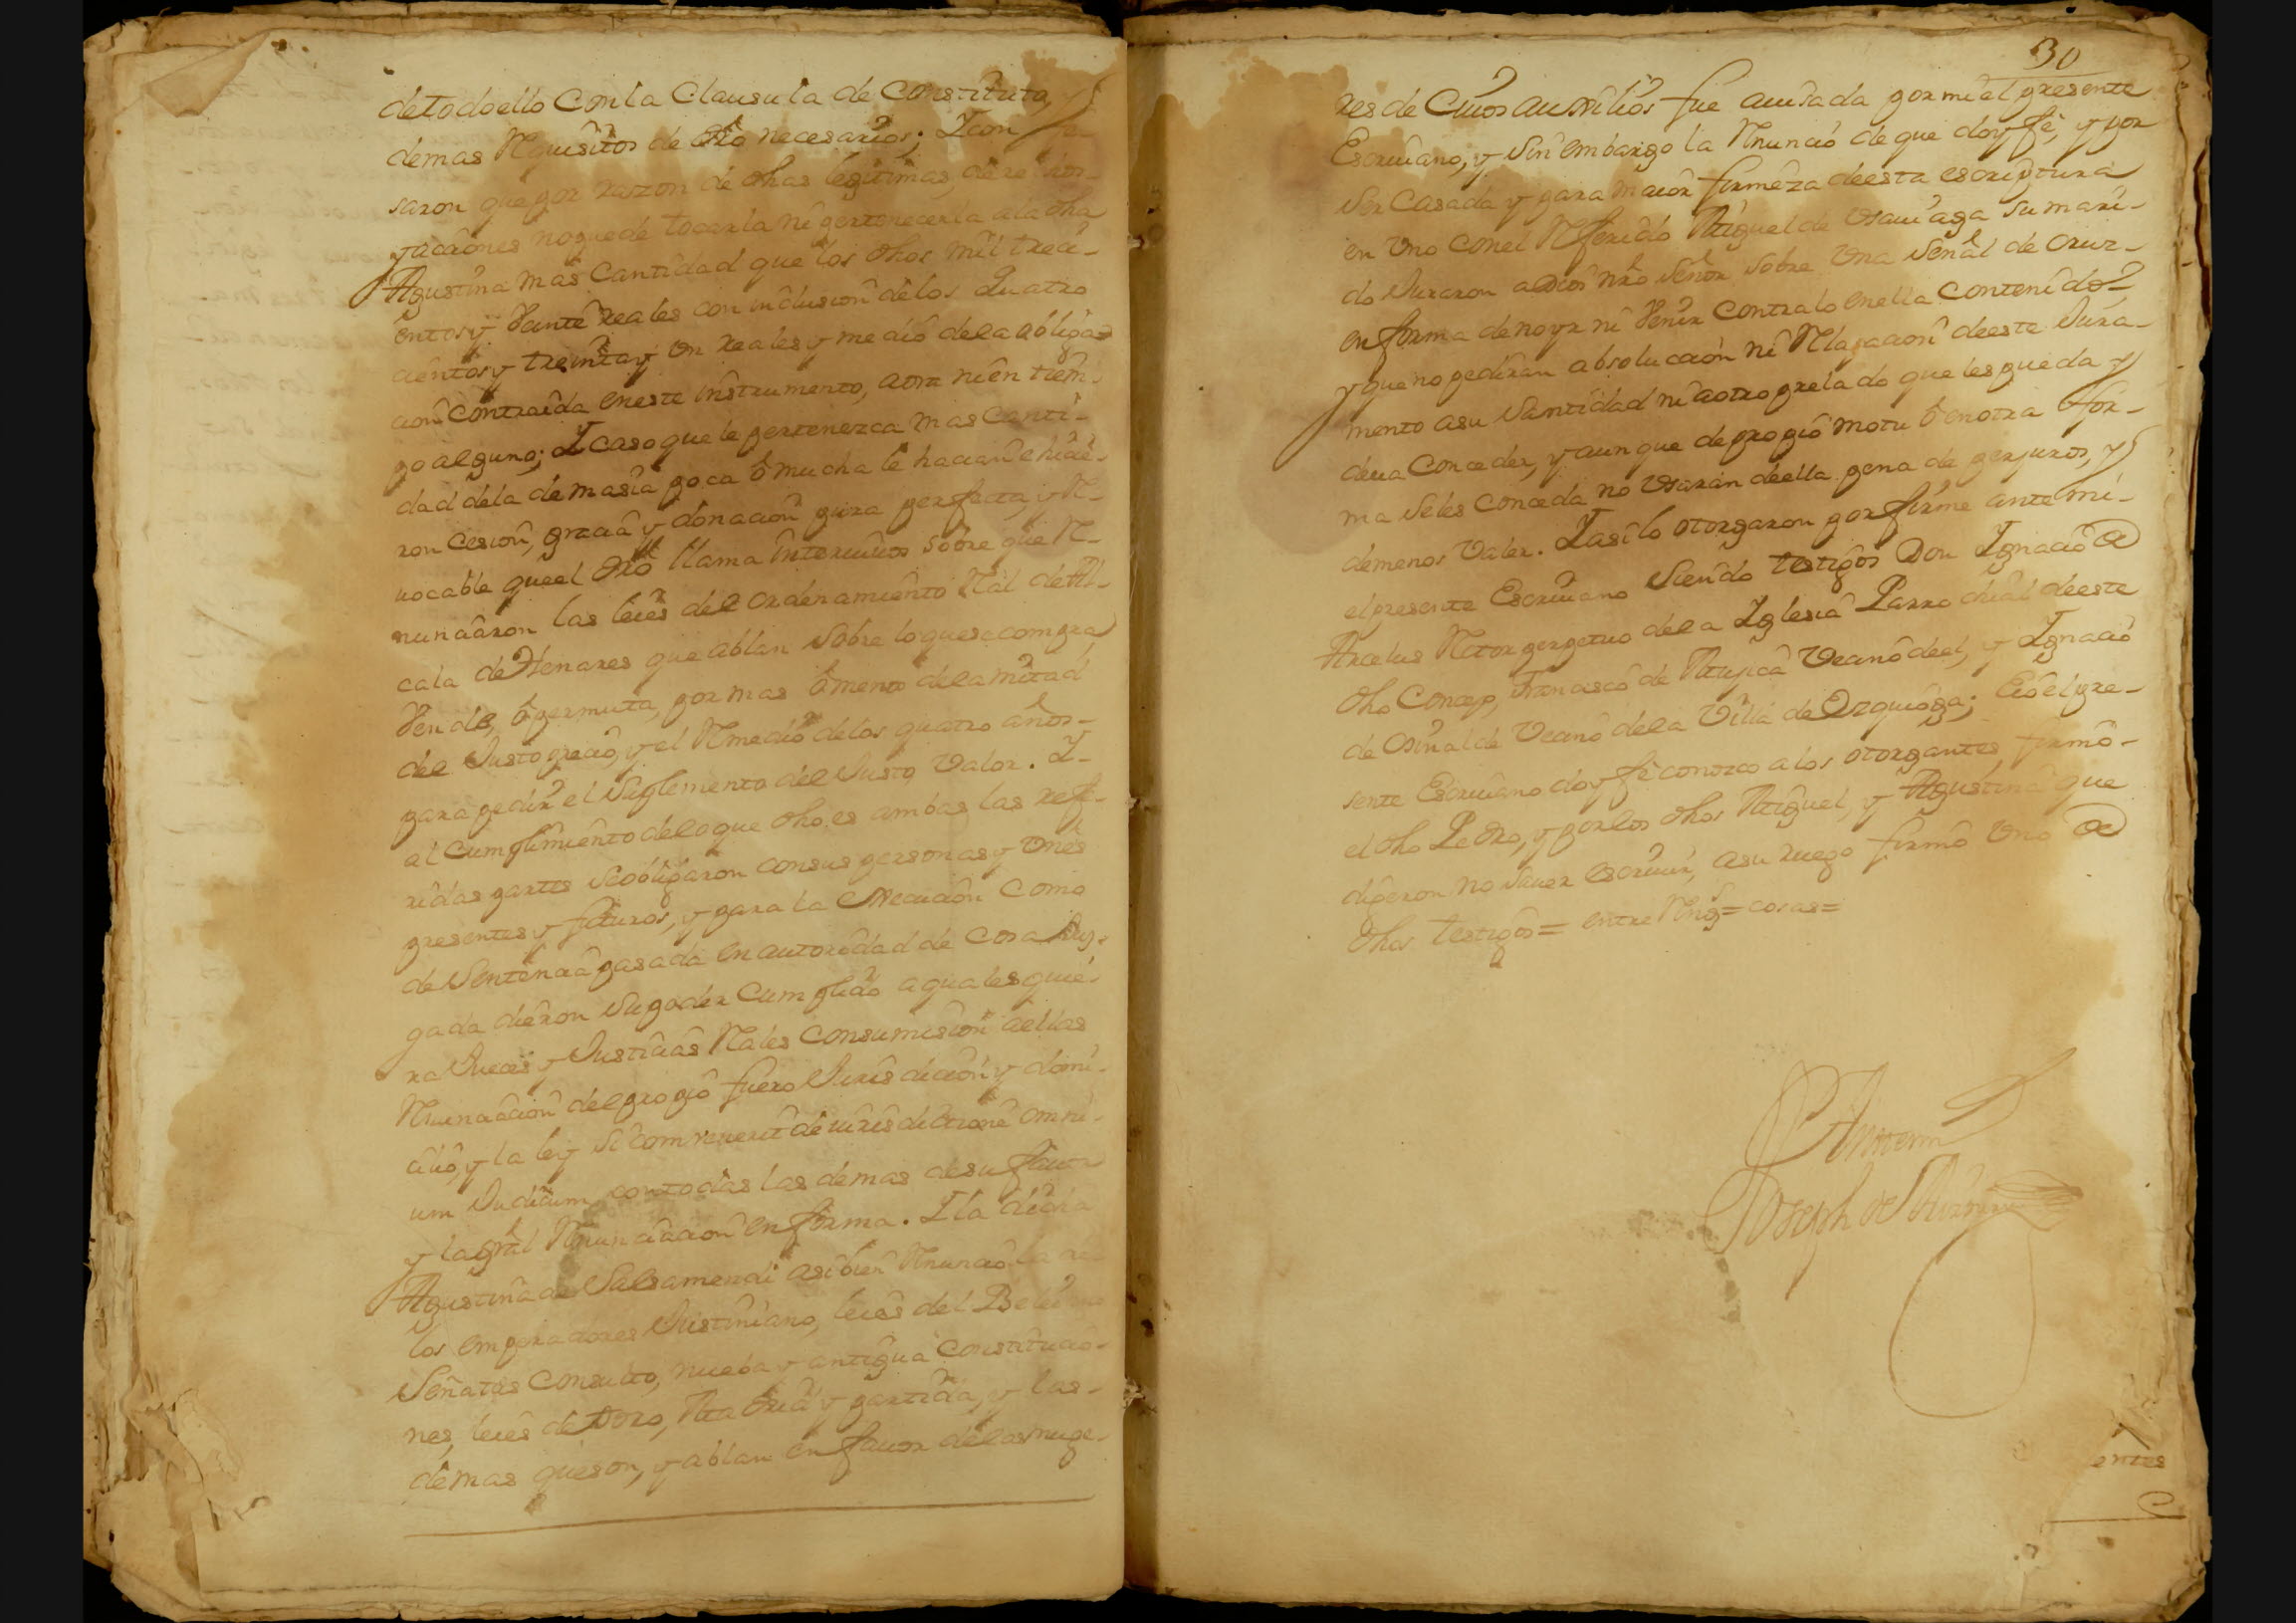 de todo ello Con la Clausula de Constituto, y
demas Requisitos de dro necesarios; Y con fe-
saron que por razon de dhas legitimas, dere chos
y acciones no puede tocarla ni pertenecerla a la dha
Agustina mas Cantidad que los dhos mil treci-
entos y Vainte Reales con inclusion de los Quatro
cientos y treinta y un Reales y medio de la obliga-
cion contraida en este instrumento, aora ni en tiem-
po alguno; Y caso que le pertenezca mas Canti-
dad de la demasia poca ô mucha le hacian e hicie-
ron Cesion, gracia y donacion pura perfecta, y Re-
uocable que el dro llama interuiuos sobre que Re-
nunciaron las leies del ordenamiento Real de Al-
cala de Henares que ablan sobre lo que se compra,
Vende, ô permuta, por mas ô menos de la mitad
del Justo precio, y el Remedio de los quatro años-
para pedir el Suplemento del Justo Valor. Y-
al Cumplimiento de lo que dho es ambas las refe-
ridas partes se obligaron con sus personas y vnes
presentes y futuros, y para la execucion Como
de Sentencia pasada en autoridad de Cosa Juz-
gada dieron su poder Cumplido a qualesquie-
ra Jueces y Justicias Rales con sumision a ellas
Renunciacion del propio fuero Jurisdicion y domi-
cilio, y la ley Si comvenerit de iurisdictione omni-
um Judicum con todas las demas de su fauor
y la gral Renunciacion en forma. Y la dicha
Agustina de Salsamendi asi bien Renuncio la de
los emperadores Justiniano, leies del Beleiano
Senatus Consulto, nueba y antigua Constitucio-
nes, leies de toro, Madrid y partida, y las-
demas que son, y ablan en fauor de las muge-
30
res de Cuios auxilios fue auisada por mi el presente
Escriuano, y sin embargo la Renuncio de que doy fe, y por
Ser Casada y para maior firmeza de esta escriptura
en vno con el Referido Miguel de Vsauiaga su mari-
do Juraron a Dios nro Señor sobre Una Señal de Cruz-
en forma de no yr ni Venir Contra lo en ella Contenido
y que no pediran absolucion ni Relaxacion de este Jura-
mento a su Santidad ni a otro prelado que les pueda y
deua Conceder, y aunque de propio motu ô en otra for-
ma se les conceda no vsaran de ella pena de perjuros, y
de menos Valer. Y asi lo otorgaron por firme ante mi-
el presente Escriuano Siendo testigos Don Ygnacio de
Arcelus Retor perpetuo de la Yglesia Parrochial de este
dho Concejo, Francisco de Mujica Vecino de el, y Ygnacio
de Osinalde Vecino de la Villa de Ezquioga; E io el pre-
sente Escriuano doy fe conozco a los otorgantes, firmô-
el dho Pedro, y por los dhos Miguel, y Agustina que
digeron no Sauer escriuir, a su ruego firmô Vno de
dhos testigos= entre Reng= cosas=
Ante mi
Joseph de
entes